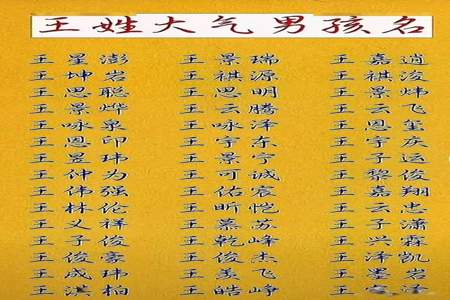 王姓大气男孩名
王星澎 王景瑞 王嘉逍
王坤岩 王祺源 王祺浚
王思聪 王思明 王景炜
王景烨 王云腾 王云飞
王咏泉 王咏泽 王恩玺
王恩印 王宇东 王宇庆
王昱玮 王景宁 王子运
王仲为 王可诚 王黎俊
王伟强 王佑宸 王嘉翔
王林伦 王昕恺 王云忠
王义祥 王慕苏 王子潇
王子俊 王乾峰 王兴霖
王俊豪 王俊杰 王泽凯
王成玮 王美飞 王墨岩
王淇柏 王皓峥 王